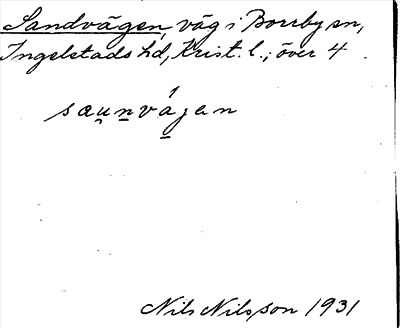 Sandvägen, väg i Borrby sn,
Ingelstads hd, Krist. l.; över 4
sæu̯n̲vá̲jen
Nils Nilsson 1931